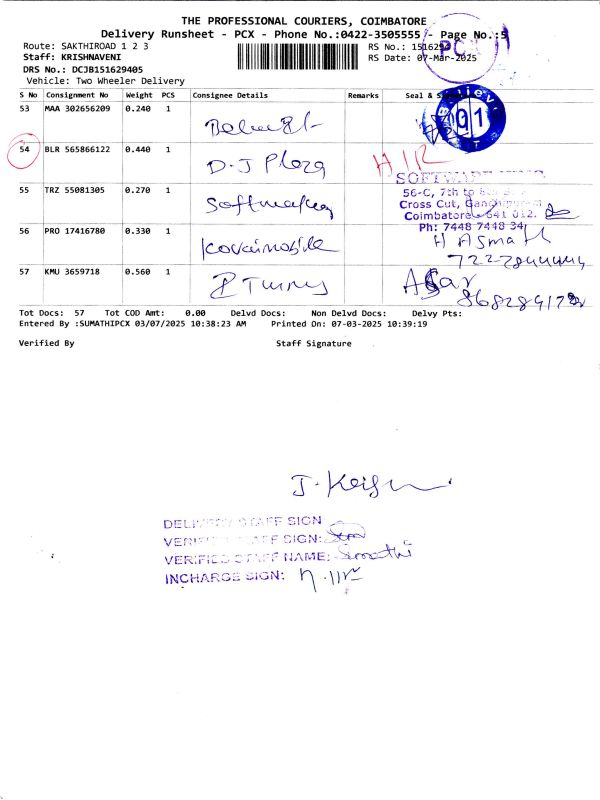 THE PROFESSIONAL COURIERS, COIMBATORE
Delivery Runsheet - PCX - Phone No.:0422-3505555 - Page No.:5
Route: SAKTHIROAD 1 2 3
RS No.: 1516294
PCX
Staff: KRISHNAVENI
RS Date: 07-Mar-2025
DRS No.: DCJB151629405
Vehicle: Two Wheeler Delivery
S No Consignment No Weight PCS Consignee Details Remarks Seal &
53 MAA 302656209 0.240 1
01
54 BLR 565866122 0.440 1 D.J Plaza
55 TRZ 55081305 0.270 1
56-C, 7th to
Cross Cut, Gandhipuram
Coimbatore - 641 012.
Ph: 7448 7448 34
56 PRO 17416780 0.330 1 Kovaimobile
57 KMU 3659718 0.560 1
Tot Docs: 57 Tot COD Amt: 0.00 Delvd Docs: Non Delvd Docs: Delvy Pts:
Entered By :SUMATHIPCX 03/07/2025 10:38:23 AM Printed On: 07-03-2025 10:39:19
Verified By Staff Signature
DELIVERY STAFF SIGN
VERIFIED STAFF SIGN:
VERIFIED STAFF NAME: Sumathi
INCHARGE SIGN: